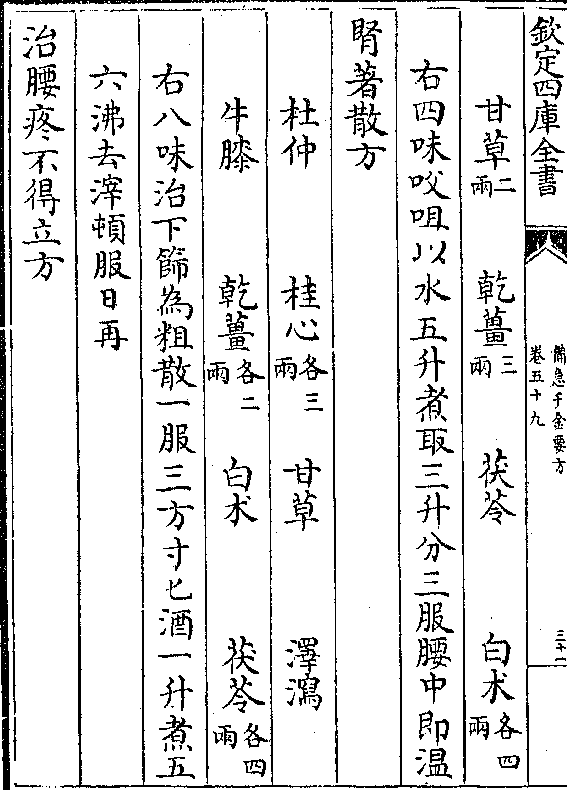 欽定四庫全書
備急千金要方
卷五十九
三十二
甘草二兩 乾薑三兩 茯苓 白朮各四兩
右四味㕮咀以水五升煮取三升分三服腰中即温
腎著散方
杜仲 桂心各三兩 甘草 澤瀉
牛膝 乾薑各二兩 白朮 茯苓各四兩
右八味治下篩為粗散一服三方寸匕酒一升煮五
六沸去滓頓服日再
治腰疼不得立方